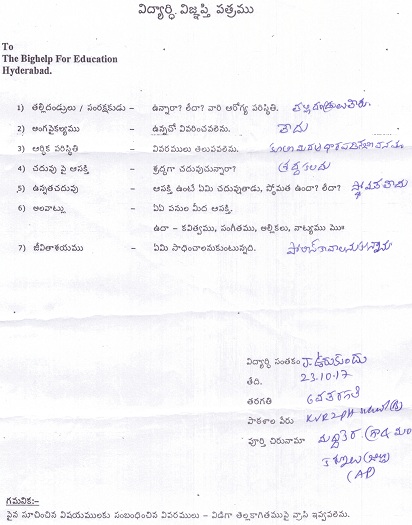 విద్యార్థి విజ్ఞప్తి పత్రము
To
The Bighelp For Education
Hyderabad.
1) తల్లిదండ్రులు / సంరక్షకుడు - ఉన్నారా? లేదా? వారి ఆరోగ్య పరిస్థితి.
2) అంగవైకల్యము - ఉన్నచో వివరించవలెను. కాదు
3) ఆర్థిక పరిస్థితి - వివరములు తెలుపవలెను.
4) చదువు పై ఆసక్తి - శ్రద్ధగా చదువుచున్నారా? శ్రద్ధ కలదు
5) ఉన్నతచదువు - ఆసక్తి ఉంటే ఏమి చదువుతాడు, స్థోమత ఉందా? లేదా? స్తోమత కాదు
6) అలవాట్లు - ఏఏ పనుల మీద ఆసక్తి.
ఉదా - కవిత్వము, సంగీతము, అల్లికలు, నాట్యము మొ॥
7) జీవితాశయము - ఏమి సాధించాలనుకుంటున్నది.
విద్యార్థి సంతకం
తేది. 23.10.17
తరగతి
పాఠశాల పేరు
పూర్తి చిరునామా మద్దికెర (గ్రా& మం
(AP)
గమనిక:-
పైన సూచించిన విషయములకు సంబంధించిన వివరములు - విడిగా తెల్లకాగితముపై వ్రాసి ఇవ్వవలెను.